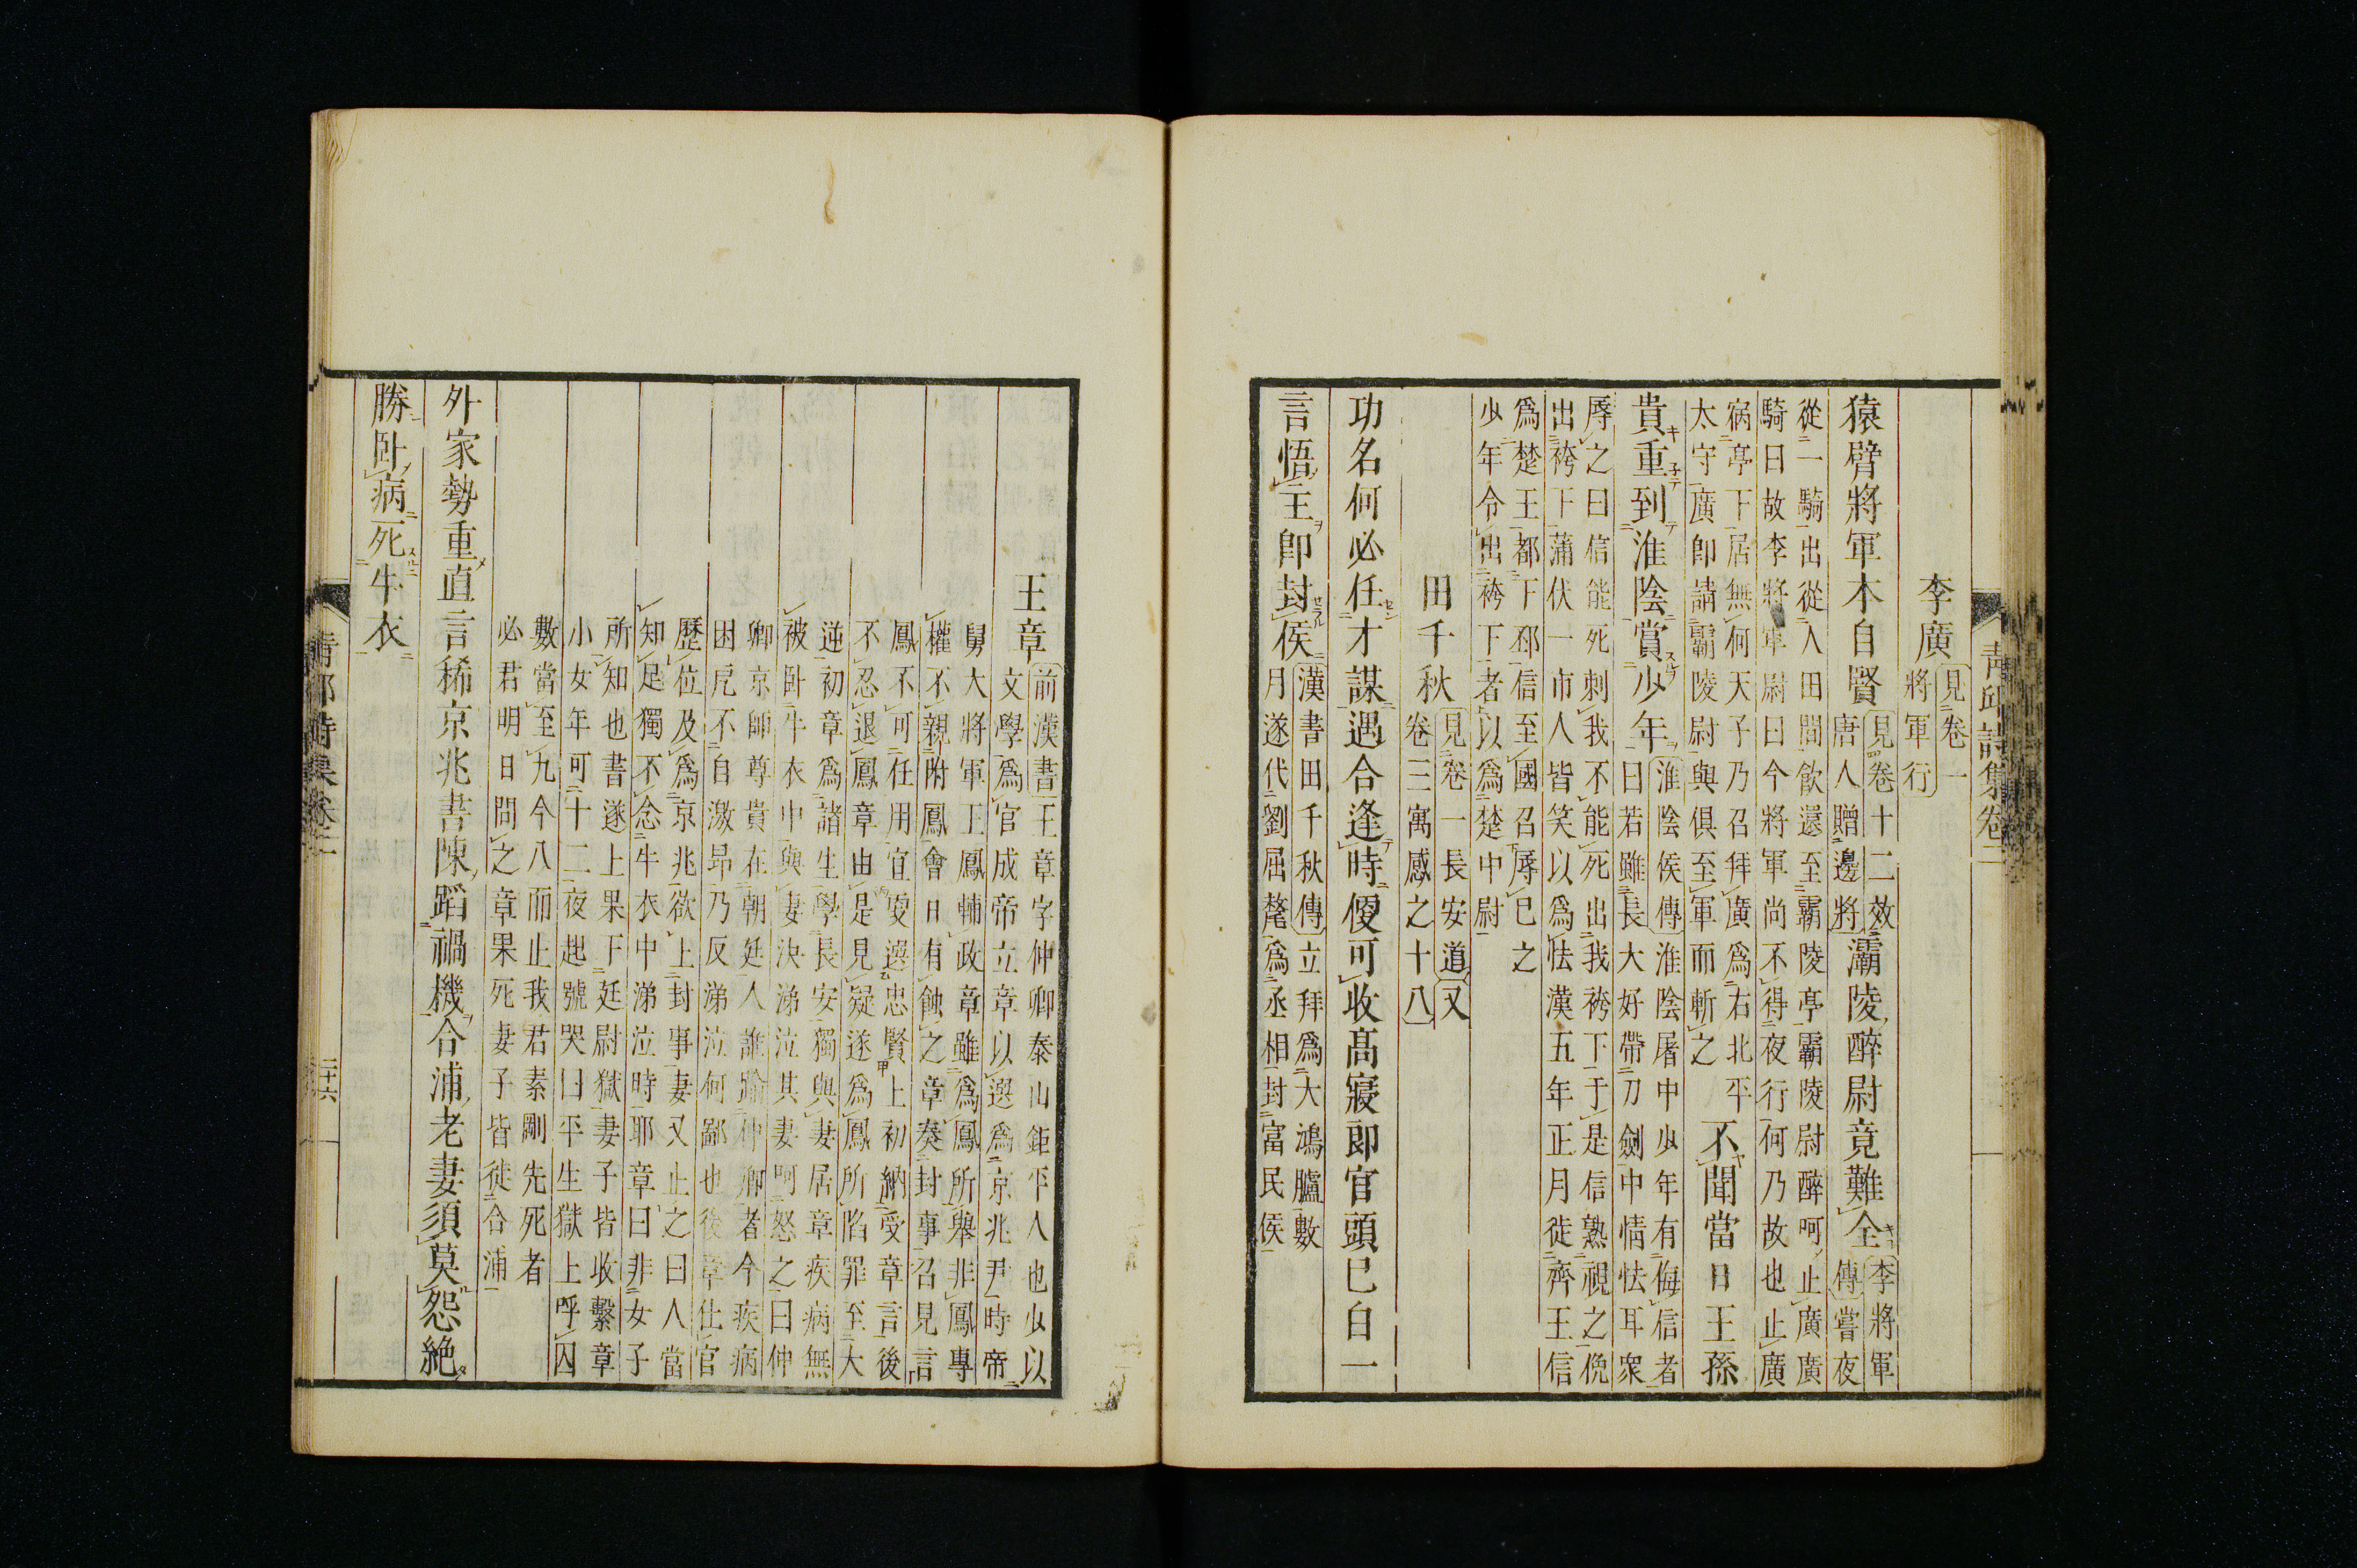 靑邱詩集卷二
李廣
見卷一
將軍行
猿臂將軍本自賢
見卷十二效
唐人贈邊將
灞陵醉尉竟難全
李將軍
傳嘗夜
從一騎出從人田間飮還至霸陵亭霸陵尉醉呵止廣廣
騎曰故李將軍尉曰今將軍尚不得夜行何乃故也止廣
宿亭下居無何天子乃召拜廣爲右北平
太守廣卽請霸陵尉與俱至軍而斬之
不聞當日王孫
貴重到淮陰賞少年
淮陰侯傳淮陰屠中少年有侮信者
曰若雖長大好帶刀劍中情怯耳衆
辱之曰信能死刺我不能死出我袴下于是信熟視之俛
出袴下蒲伏一市人皆笑以爲怯漢五年正月徙齊王信
爲楚王都下邳信至國召辱已之
少年令出袴下者以爲楚中尉
田千秋
見卷一長安道又
卷三寓感之十八
功名何必任才謀遇合逢時便可收高寢郎官頭已白一
言悟主卽封侯
漢書田千秋傳立拜爲大鴻臚數
月遂代劉屈氂爲丞相封富民侯
王章
前漢書王章字仲卿泰山鉅平人也少以
文學爲官成帝立章以選爲京兆尹時帝
舅大將軍王鳳輔政章雖爲鳳所舉非鳳專
權不親附鳳會日有蝕之章奏封事召見言
鳳不可任用宜更選忠賢上初納受章言後
不忍退鳳章由是見疑遂爲鳳所陷罪至大
逆初章爲諸生學長安獨與妻居章疾病無
被卧牛衣中與妻決涕泣其妻呵怒之曰仲
卿京師尊貴在朝廷人誰踰仲卿者今疾病
困戹不自激昂乃反涕泣何鄙也後章仕官
歷位及爲京兆欲上封事妻又止之曰人當
知足獨不念牛衣中涕泣時耶章曰非女子
所知也書遂上果下廷尉獄妻子皆收繫章
小女年可十二夜起號哭曰平生獄上呼囚
數當至九今八而止我君素剛先死者
必君明日問之章果死妻子皆徙合浦
外家勢重直言稀京兆書陳蹈禍機合浦老妻須莫怨絶
勝卧病死牛衣
靑邱詩集卷二
二十六